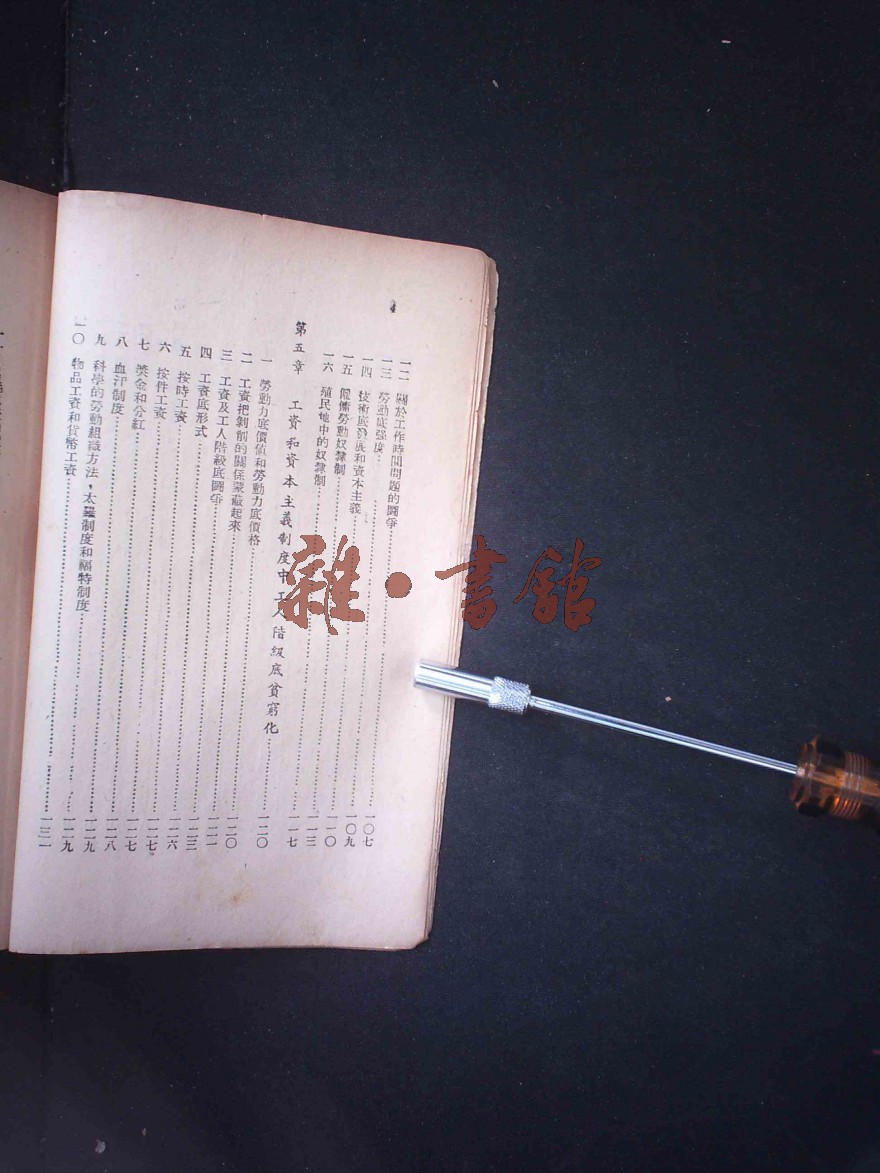 4
一二 關於工作時間問題的鬪爭……一〇七
一三 勞動底强度……一〇九
一四 技術底發展和資本主義……一一〇
一五 僱傭勞動奴隸制……一一三
一六 殖民地中的奴隸制……一一七
第五章 工資和資本主義制度中工人階級底貧窮化……一二〇
一 勞動力底價値和勞動力底價格……一二〇
二 工資把剝削的關係蒙蔽起來……一二一
三 工資及工人階級底鬪爭……一二三
四 工資底形式……一二六
五 按時工資……一二七
六 按件工資……一二七
七 獎金和分紅……一二八
八 血汗制度……一二九
九 科學的勞動組織方法，太羅制度和福特制度……一二九
一〇 物品工資和貨幣工資……一三一
雜·書館